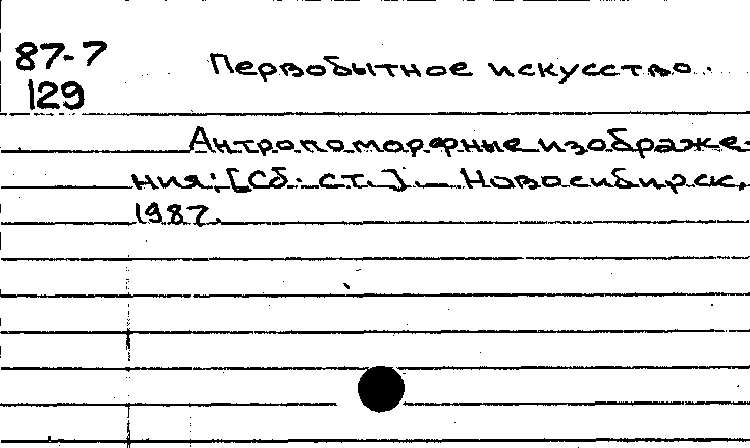 87-7
129
Первобытное искусство.
Антропоморфные изображе-
ния: [Сб. ст.]. — Новосибирск,
1987.